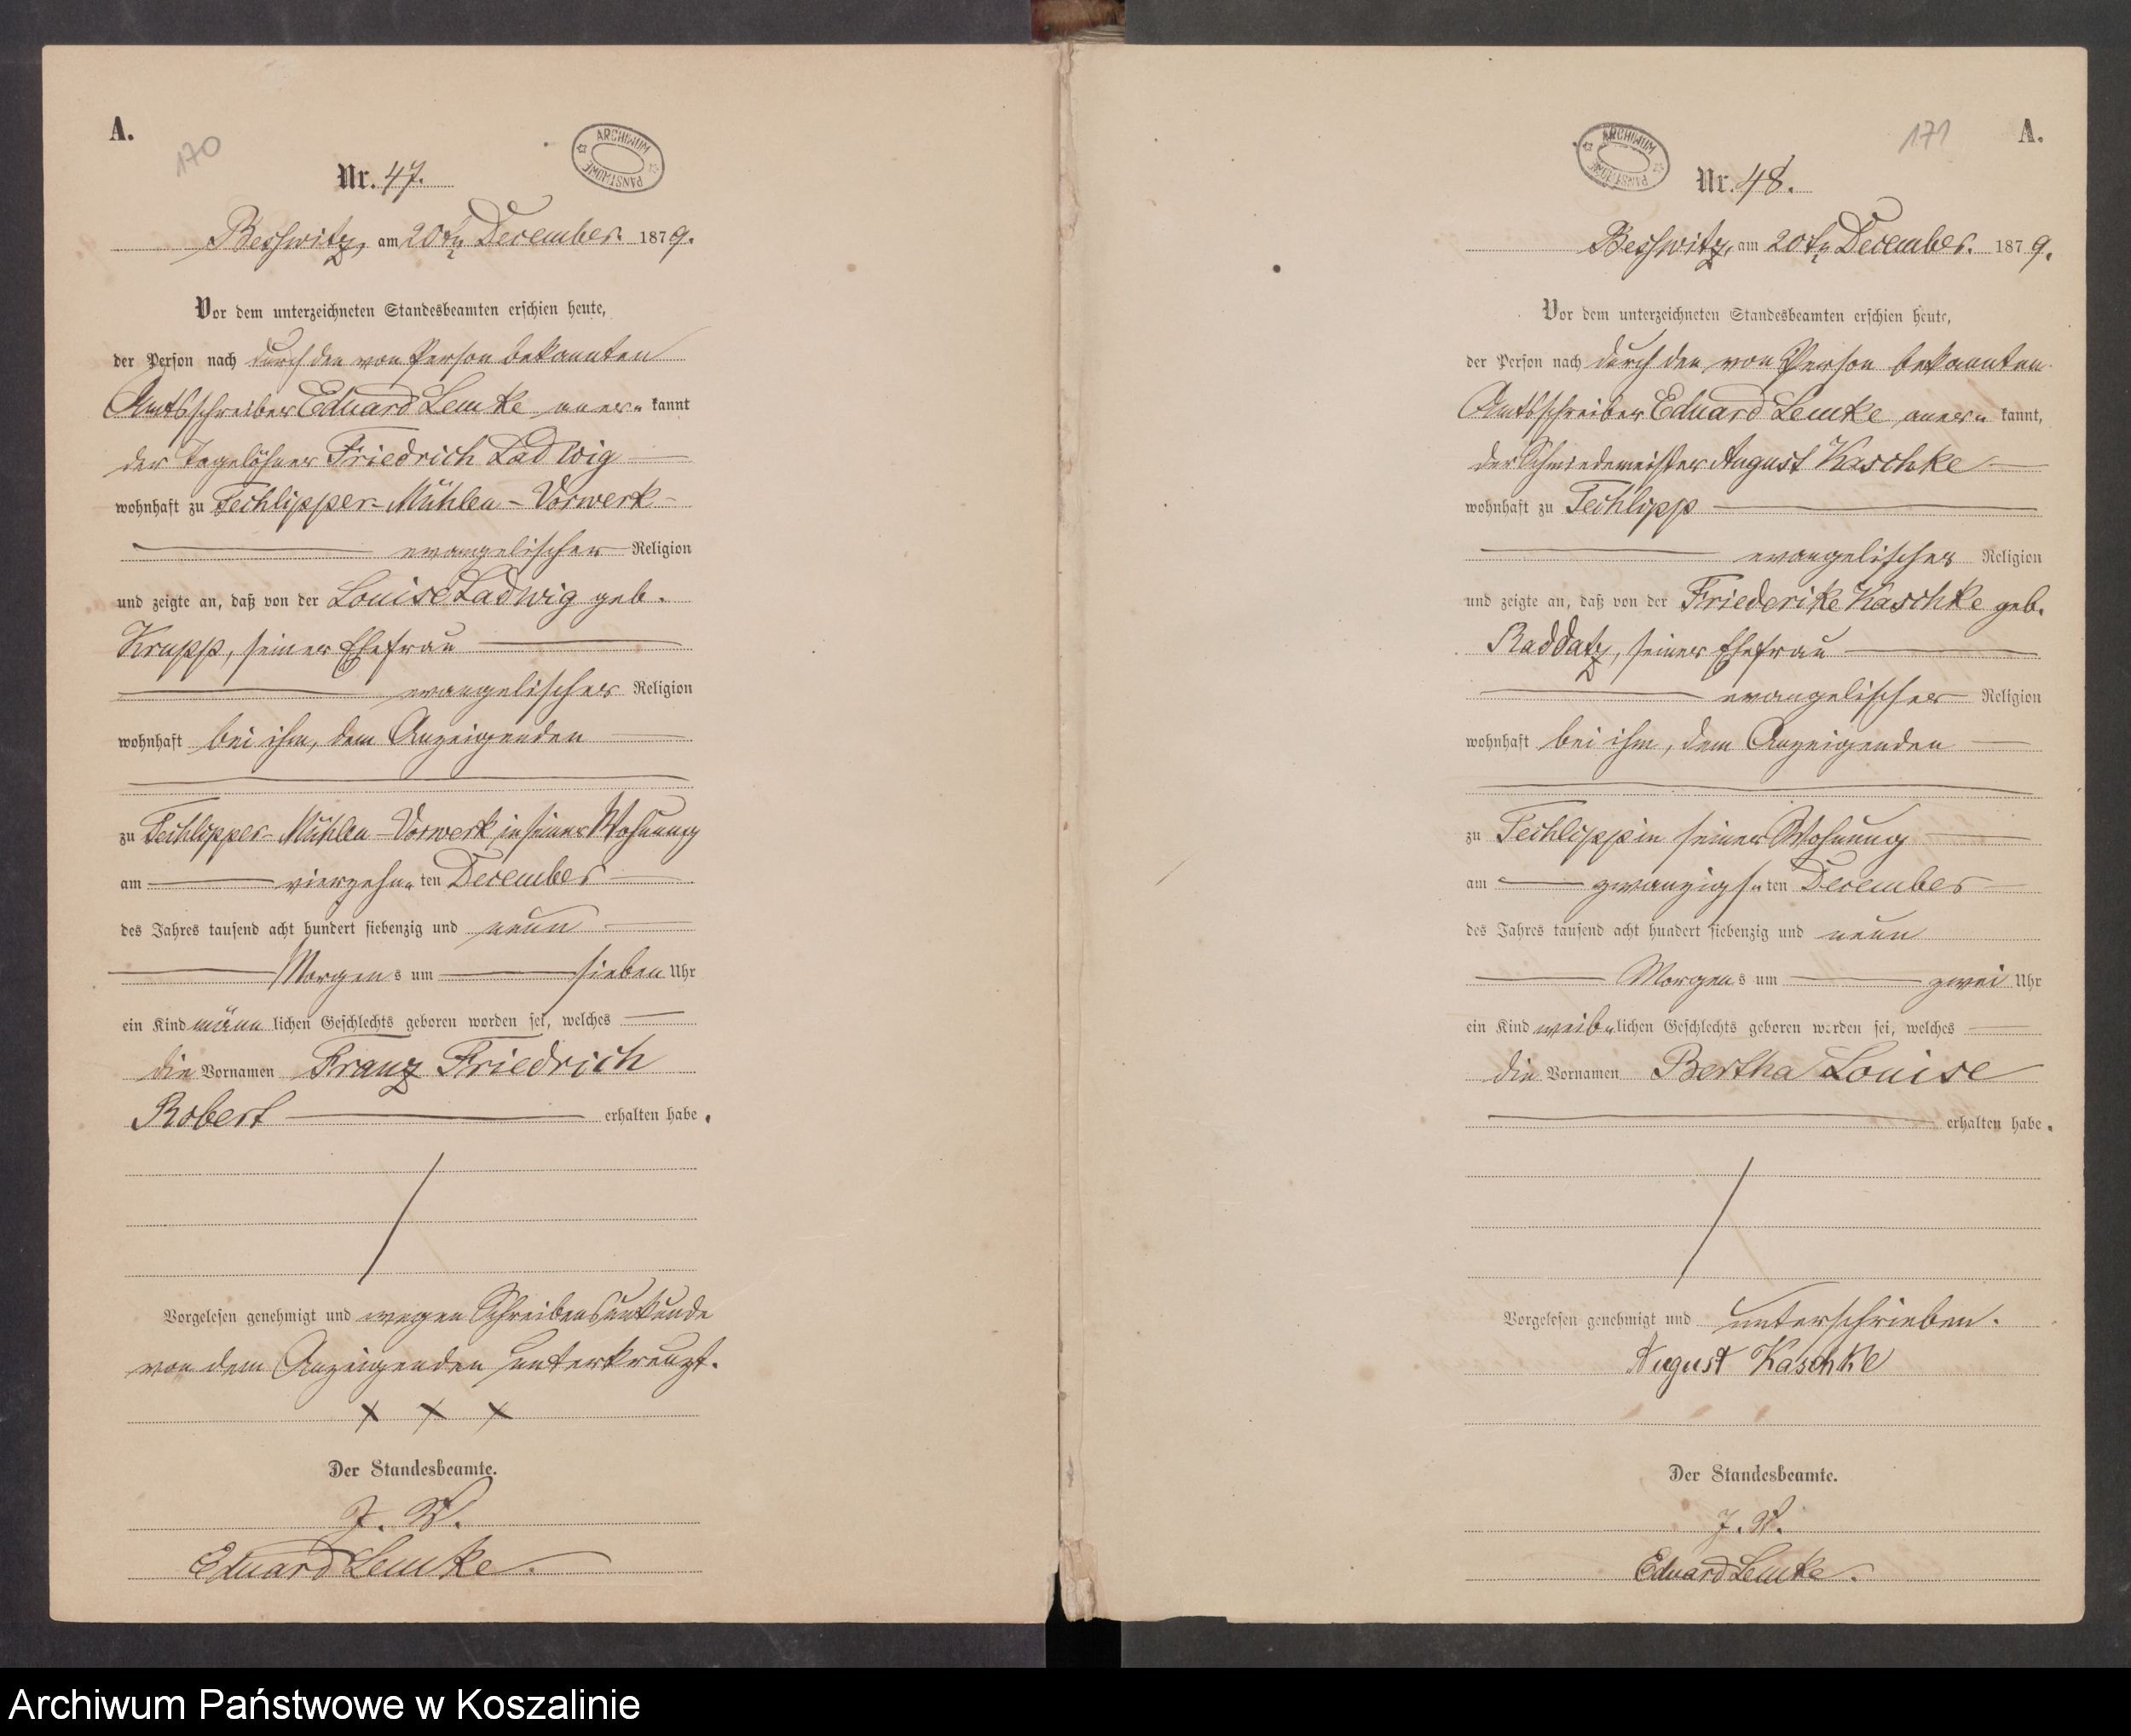 A.
170
ARCHIWUM PAŃSTWOWE
Nr. 47.
Besswitz, am 20ten December 1879.
Vor dem unterzeichneten Standesbeamten erschien heute,
der Person nach durch den von Person bekannten
Amtsschreiber Eduard Lemke aner= kannt
der Tagelöhner Friedrich Ladwig
wohnhaft zu Techlipper-Mühlen-Vorwerk
evangelischer Religion
und zeigte an, daß von der Louise Ladwig geb.
Krupp, seiner Ehefrau
evangelischer Religion
wohnhaft bei ihm, dem Anzeigenden
zu Techlipper-Mühlen-Vorwerk in seiner Wohnung
am vierzehn= ten December
des Jahres tausend acht hundert siebenzig und neun
Morgens um sieben Uhr
ein Kind männlichen Geschlechts geboren worden sei, welches
die Vornamen Franz Friedrich
Robert erhalten habe.
Vorgelesen genehmigt und wegen Schreibensunkunde
von dem Anzeigenden unterkreuzt.
x x x
Der Standesbeamte.
J. V.
Eduard Lemke.
171
A.
ARCHIWUM PAŃSTWOWE
Nr. 48.
Besswitz, am 20ten December. 1879.
Vor dem unterzeichneten Standesbeamten erschien heute,
der Person nach durch den von Person bekannten
Amtsschreiber Eduard Lemke aner= kannt,
der Schmiedemeister August Kaschke
wohnhaft zu Techlipp
evangelischer Religion
und zeigte an, daß von der Friederike Kaschke geb.
Raddatz, seiner Ehefrau
evangelischer Religion
wohnhaft bei ihm, dem Anzeigenden
zu Techlipp in seiner Wohnung
am zwanzigs= ten December
des Jahres tausend acht hundert siebenzig und neun
Morgens um zwei Uhr
ein Kind weib=lichen Geschlechts geboren worden sei, welches
die Vornamen Bertha Louise
erhalten habe.
Vorgelesen genehmigt und unterschrieben.
August Kaschke
Der Standesbeamte.
J. V.
Eduard Lemke.
Archiwum Państwowe w Koszalinie